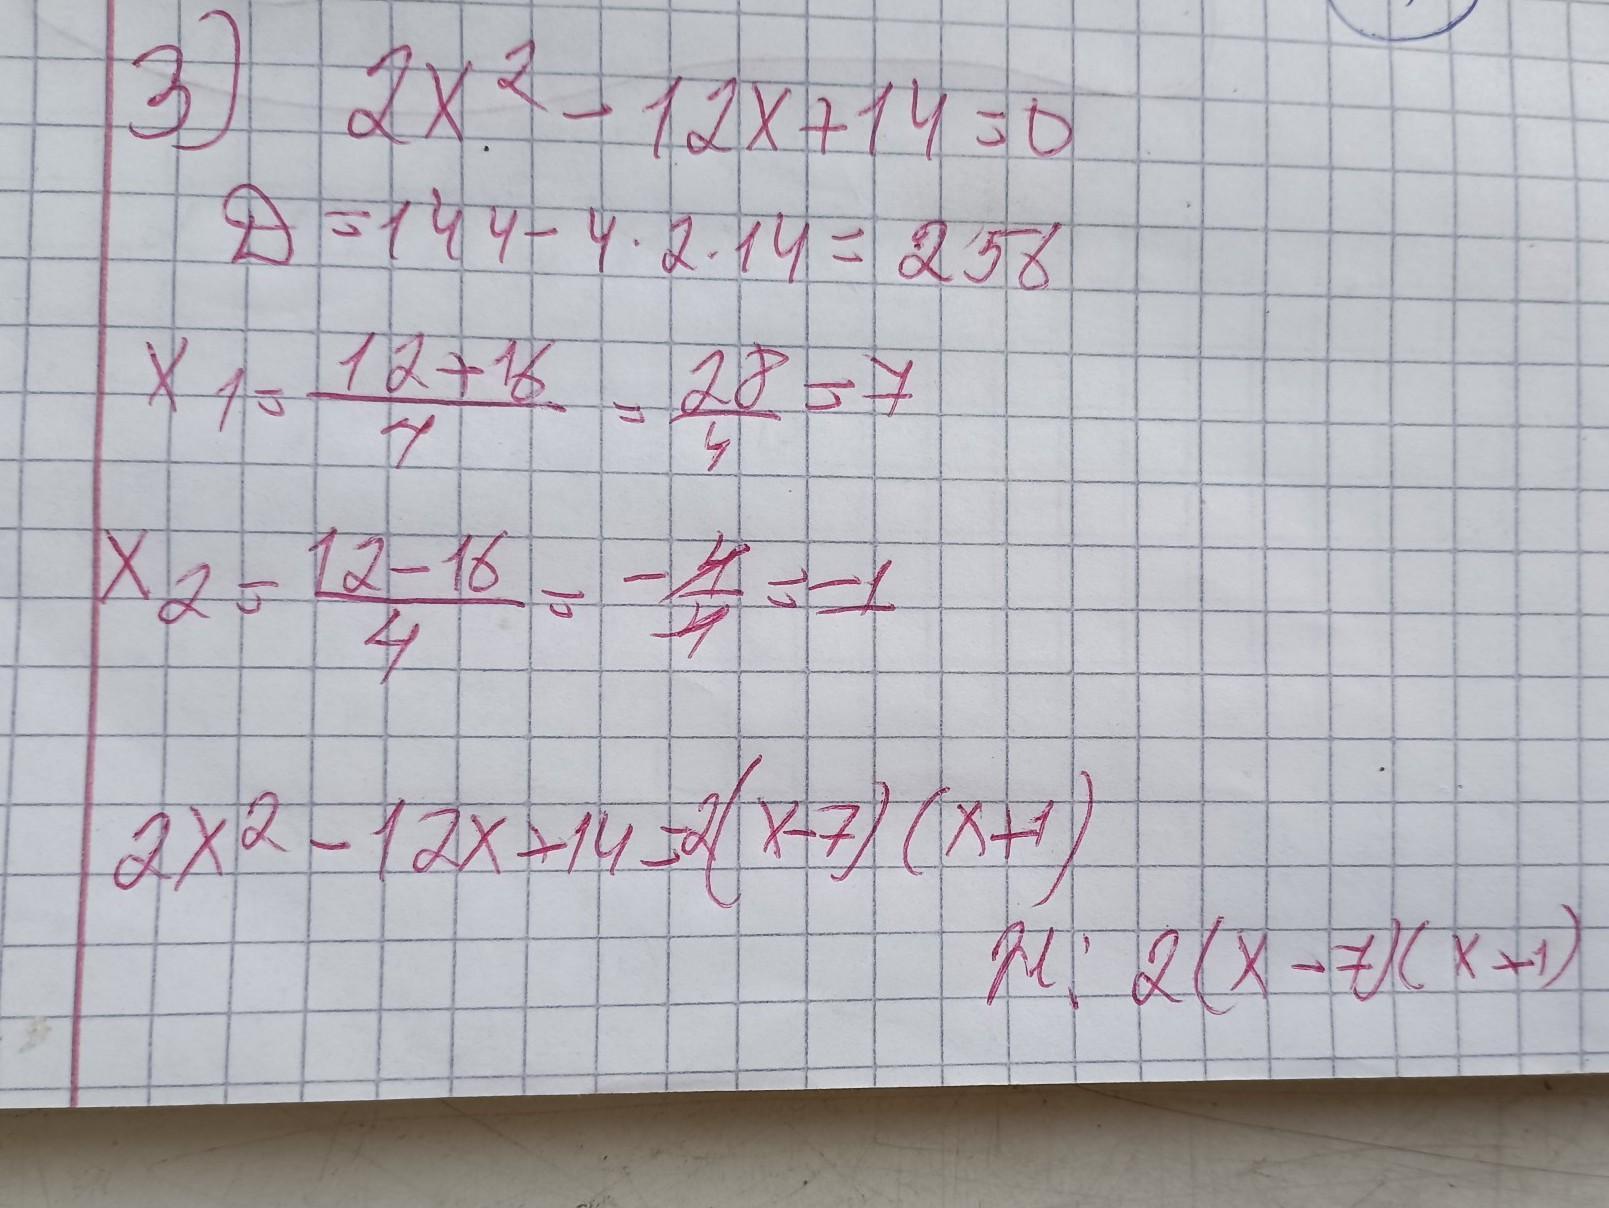 3) 2x² - 12x + 14 = 0
D = 144 - 4 · 2 · 14 = 256
x1 = (12 + 16)/4 = 28/4 = 7
x2 = (12 - 16)/4 = -4/4 = -1
2x² - 12x + 14 = 2(x - 7)(x + 1)
2(x - 7)(x + 1)